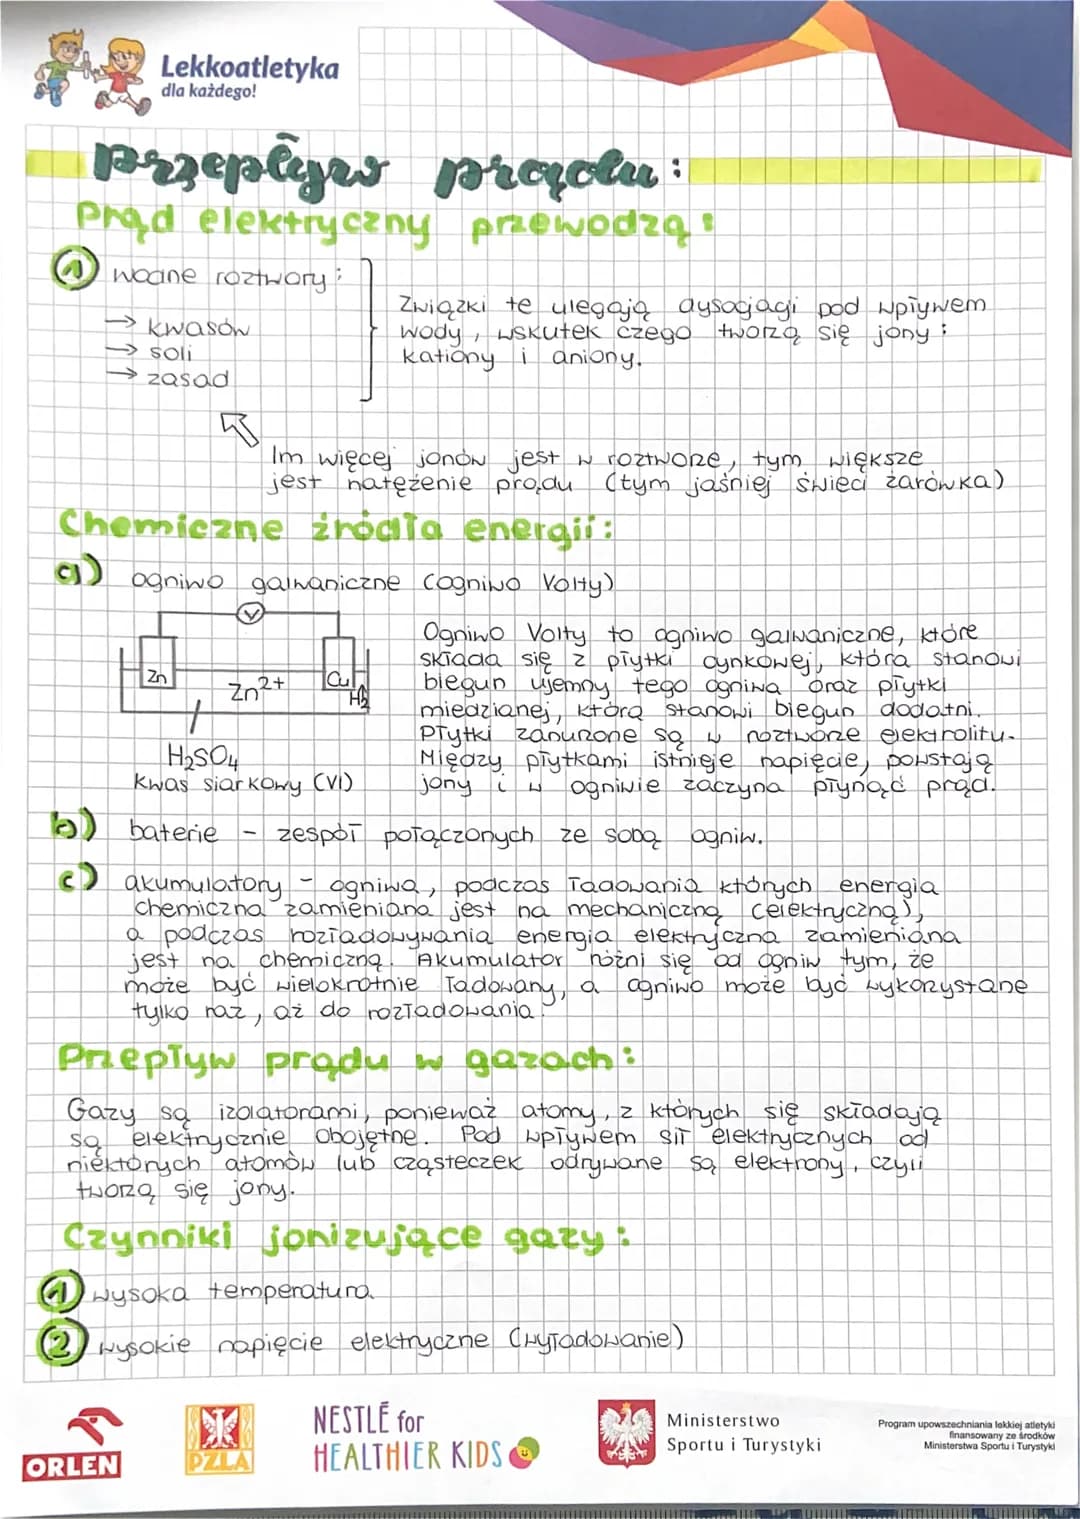 Lekkoatletyka
dla każdego!
przepływ prądu:
Prąd elektryczny przewodzą:
① wodne roztwory:
→ kwasów
→ soli
→ zasad
Związki te ulegają dysocjacji pod wpływem
wody, wskutek czego tworzą się jony:
kationy i aniony.
Im więcej jonów jest w roztworze, tym większe
jest natężenie prądu (tym jaśniej świeci żarówka)
Chemiczne źródła energii:
a) ogniwo galwaniczne (ogniwo Volty)
V
Zn
Zn²⁺
Cu
H₂
H₂SO₄
kwas siarkowy (VI)
Ogniwo Volty to ogniwo galwaniczne, które
składa się z płytki cynkowej, która stanowi
biegun ujemny tego ogniwa oraz płytki
miedzianej, którą stanowi biegun dodatni.
Płytki zanurzone są w roztworze elektrolitu.
Między płytkami istnieje napięcie, powstają
jony i w ogniwie zaczyna płynąć prąd.
b) baterie - zespół połączonych ze sobą ogniw.
c) akumulatory - ogniwa, podczas ładowania których energia
chemiczna zamieniana jest na mechaniczną (elektryczną),
a podczas rozładowywania energia elektryczna zamieniana
jest na chemiczną. Akumulator różni się od ogniw tym, że
może być wielokrotnie ładowany, a ogniwo może być wykorzystane
tylko raz, aż do rozładowania.
Przepływ prądu w gazach:
Gazy są izolatorami, ponieważ atomy, z których się składają
są elektrycznie obojętne. Pod wpływem sił elektrycznych od
niektórych atomów lub cząsteczek odrywane są elektrony, czyli
tworzą się jony.
Czynniki jonizujące gazy:
① wysoka temperatura
② wysokie napięcie elektryczne (wyładowanie)
ORLEN
PZLA
NESTLĒ for
HEALTHIER KIDS
Ministerstwo
Sportu i Turystyki
Program upowszechniania lekkiej atletyki
finansowany ze środków
Ministerstwa Sportu i Turystyki